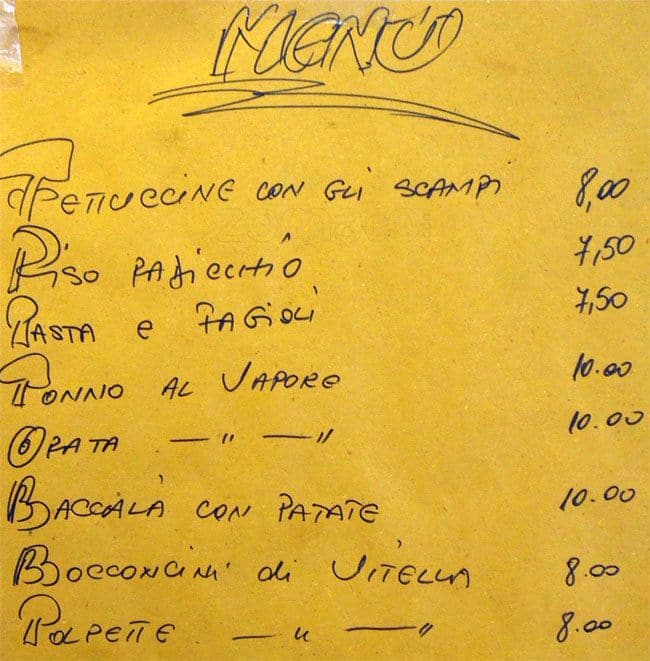 MENÙ
FETTUCCINE CON GLI SCAMPI 8,00
RISO RADICCHIO 7,50
PASTA e FAGIOLI 7,50
TONNO AL VAPORE 10.00
ORATA — " — " 10.00
BACCALÀ CON PATATE 10.00
BOCCONCINI di VITELLA 8.00
POLPETTE — " — " 8.00